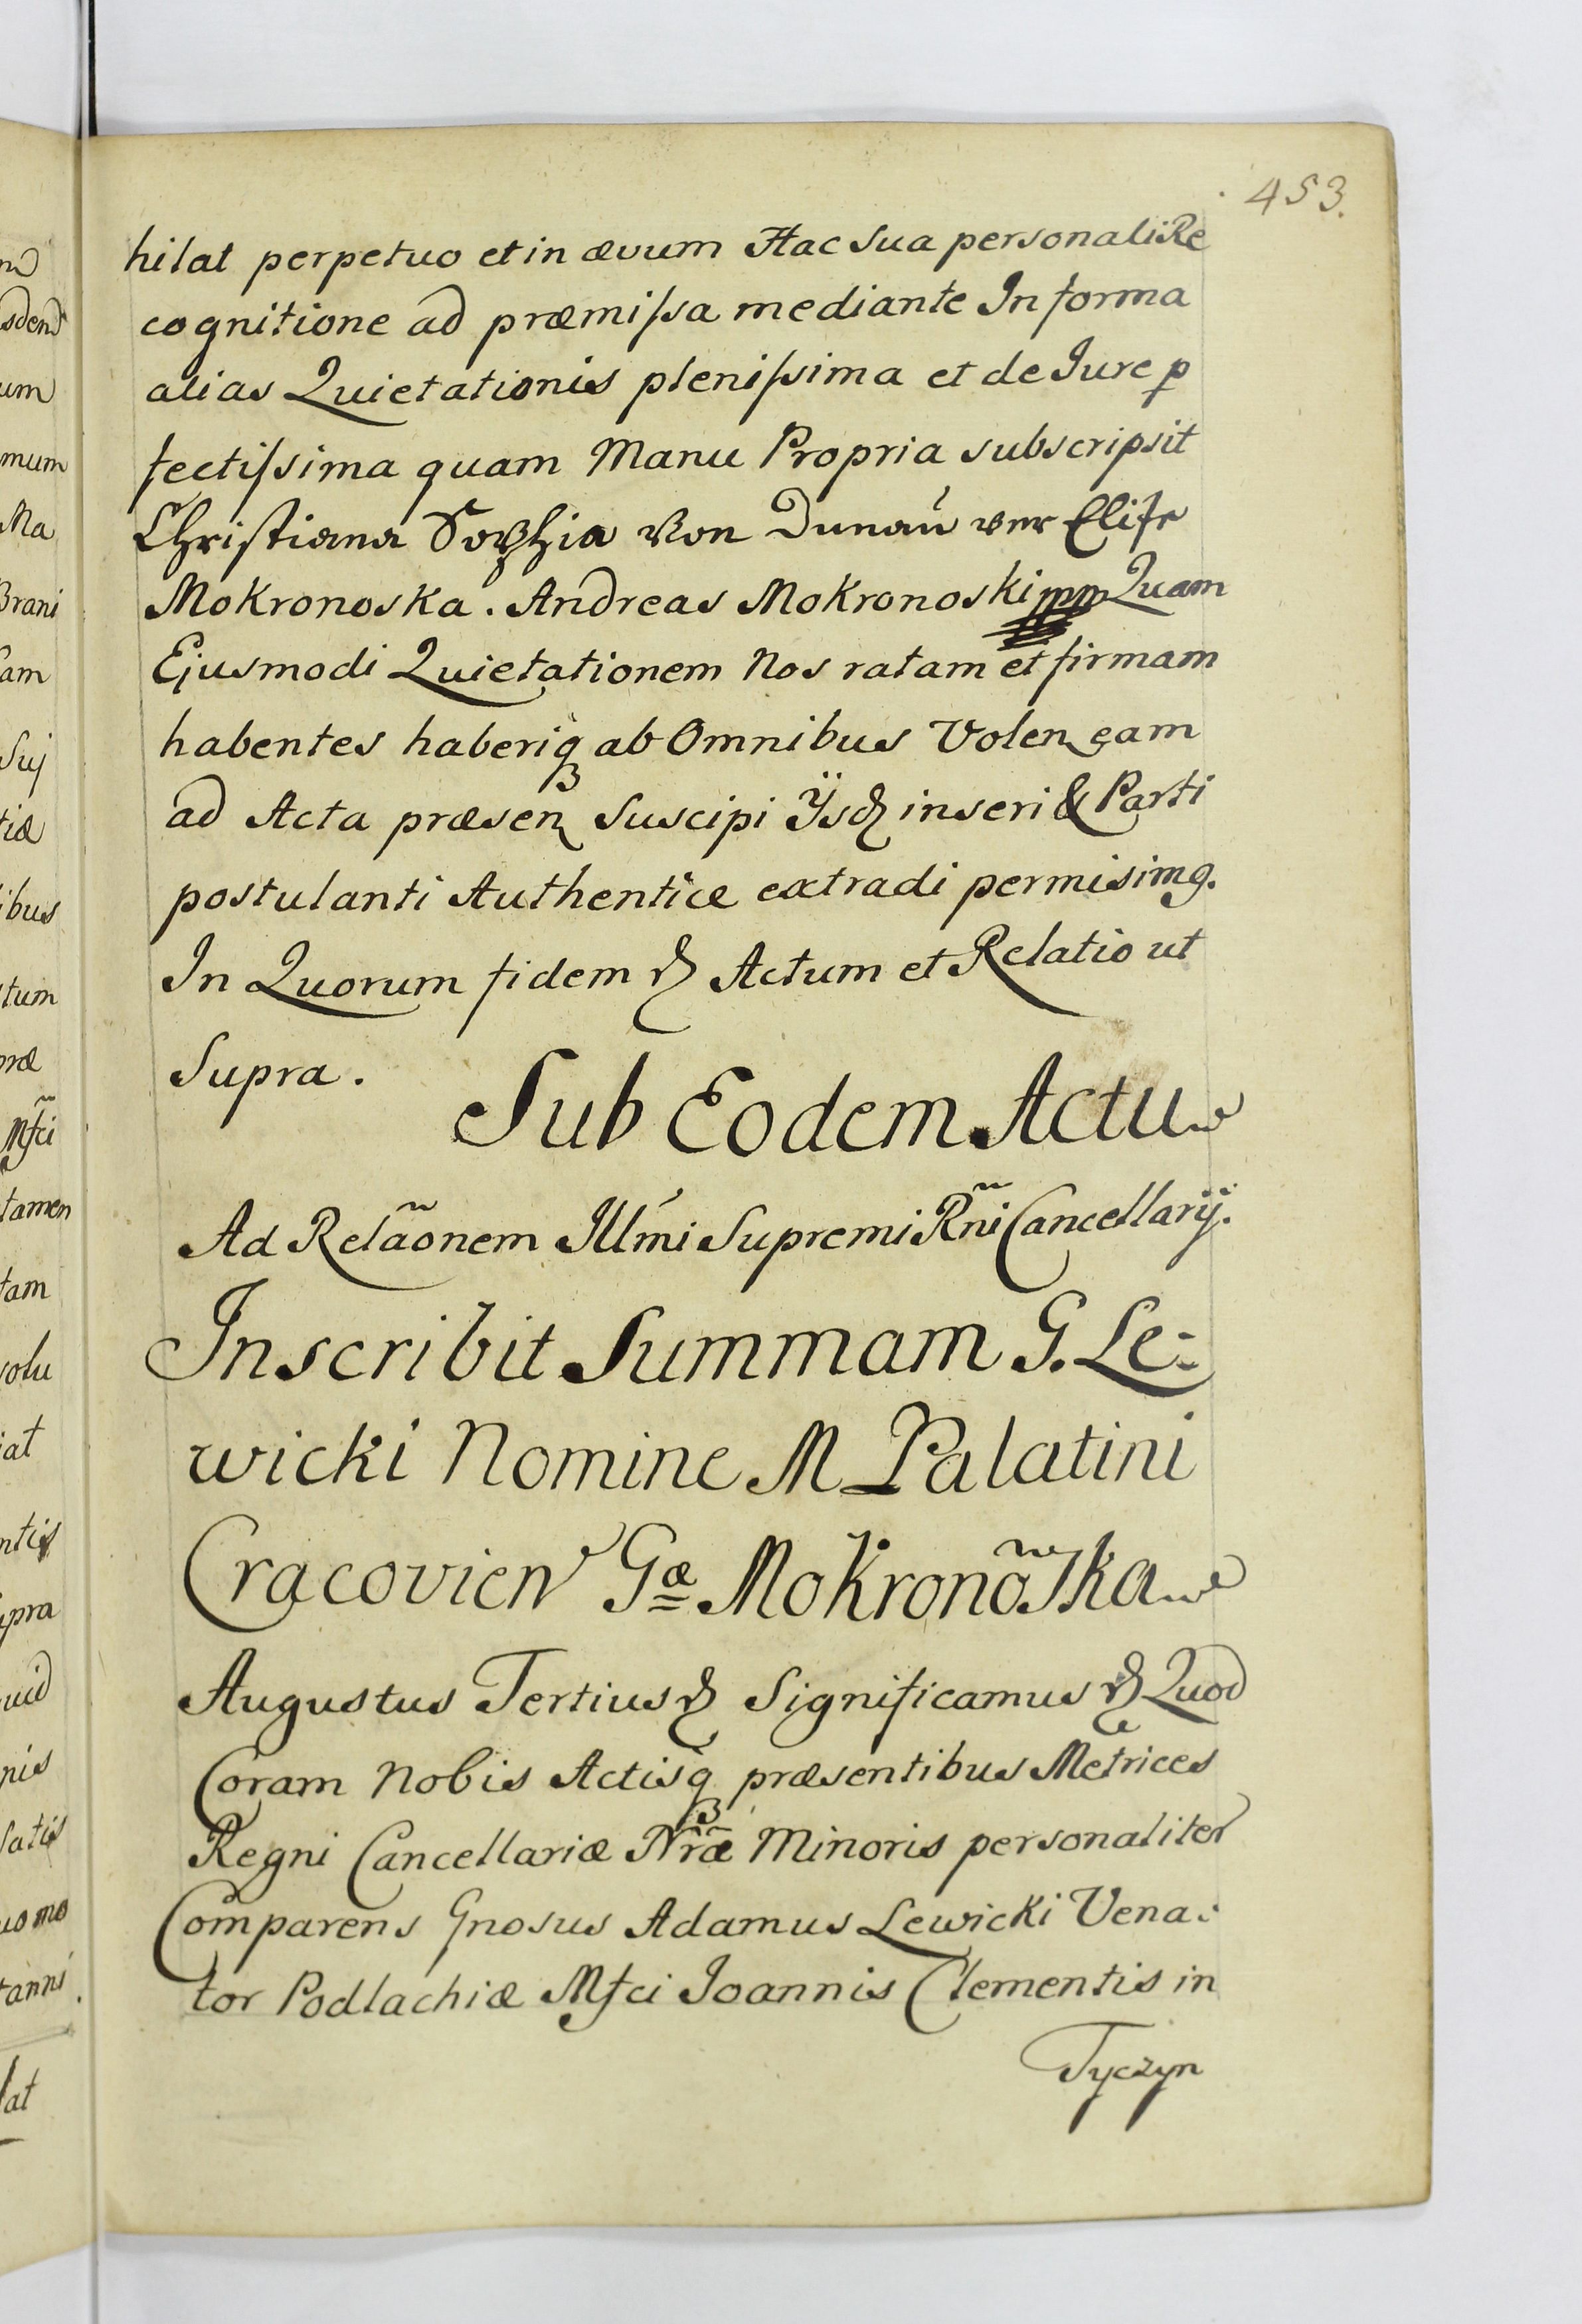 453.
hilat perpetuo et in ævum Hac Sua personali Re
cognitione ad præmissa mediante In forma
alias Quietationis plenissima et de Jure p
fectissima quam Manu Propria subscripsit
Christiana Sophia Von Dunaŭ
Mokronoska. Andreas Mokronoski mp Quam
Ejusmodi Quietationem Nos ratam et firmam
habentes haberiqꝫ ab Omnibus Volen eam
ad Acta præsen Suscipi Ÿsdꝫ inseri & Parti
postulanti Authentice extradi permisimꝯ.
In Quorum fidem ꝛ Actum et Relatio ut
Supra.
Sub Eodem Actu
Ad Relãonem Illmi Supremi Rñi Cancellarij.
Inscribit Summam G. Le-
wicki Nomine M Palatini
Cracovien Gæ Mokronõska
Augustus Tertius ꝛ Significamus ꝛ Quod
Coram Nobis Actisqꝫ præsentibus Metrices
Regni Cancellariæ Nr̃æ Minoris personaliter
Comparens Gnosus Adamus Lewicki Vena-
tor Podlachiæ Mfci Joannis Clementis in
Tyczyn
sdem
um
mum
Ma
Brani
am
Suj
tiæ
ibus
tum
ræ
Mfci
tamen
tam
olu
iat
ntis
pra
uid
nis
latis
uomo
anni.
lat